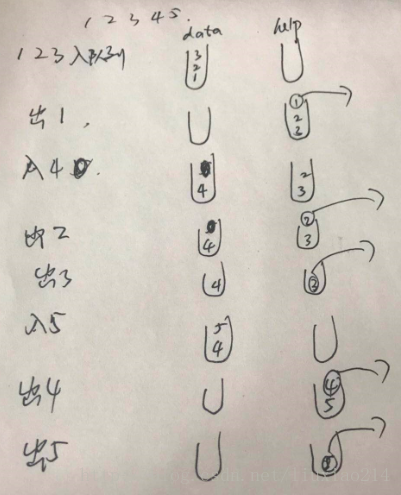 1 2 3 4 5.
data help
1 2 3 入队列 3 2 1
出1, 1 2 3
入4. 4 2 3
出2 4 2 3
出3 4 3
入5 5 4
出4 4 5
出5 5